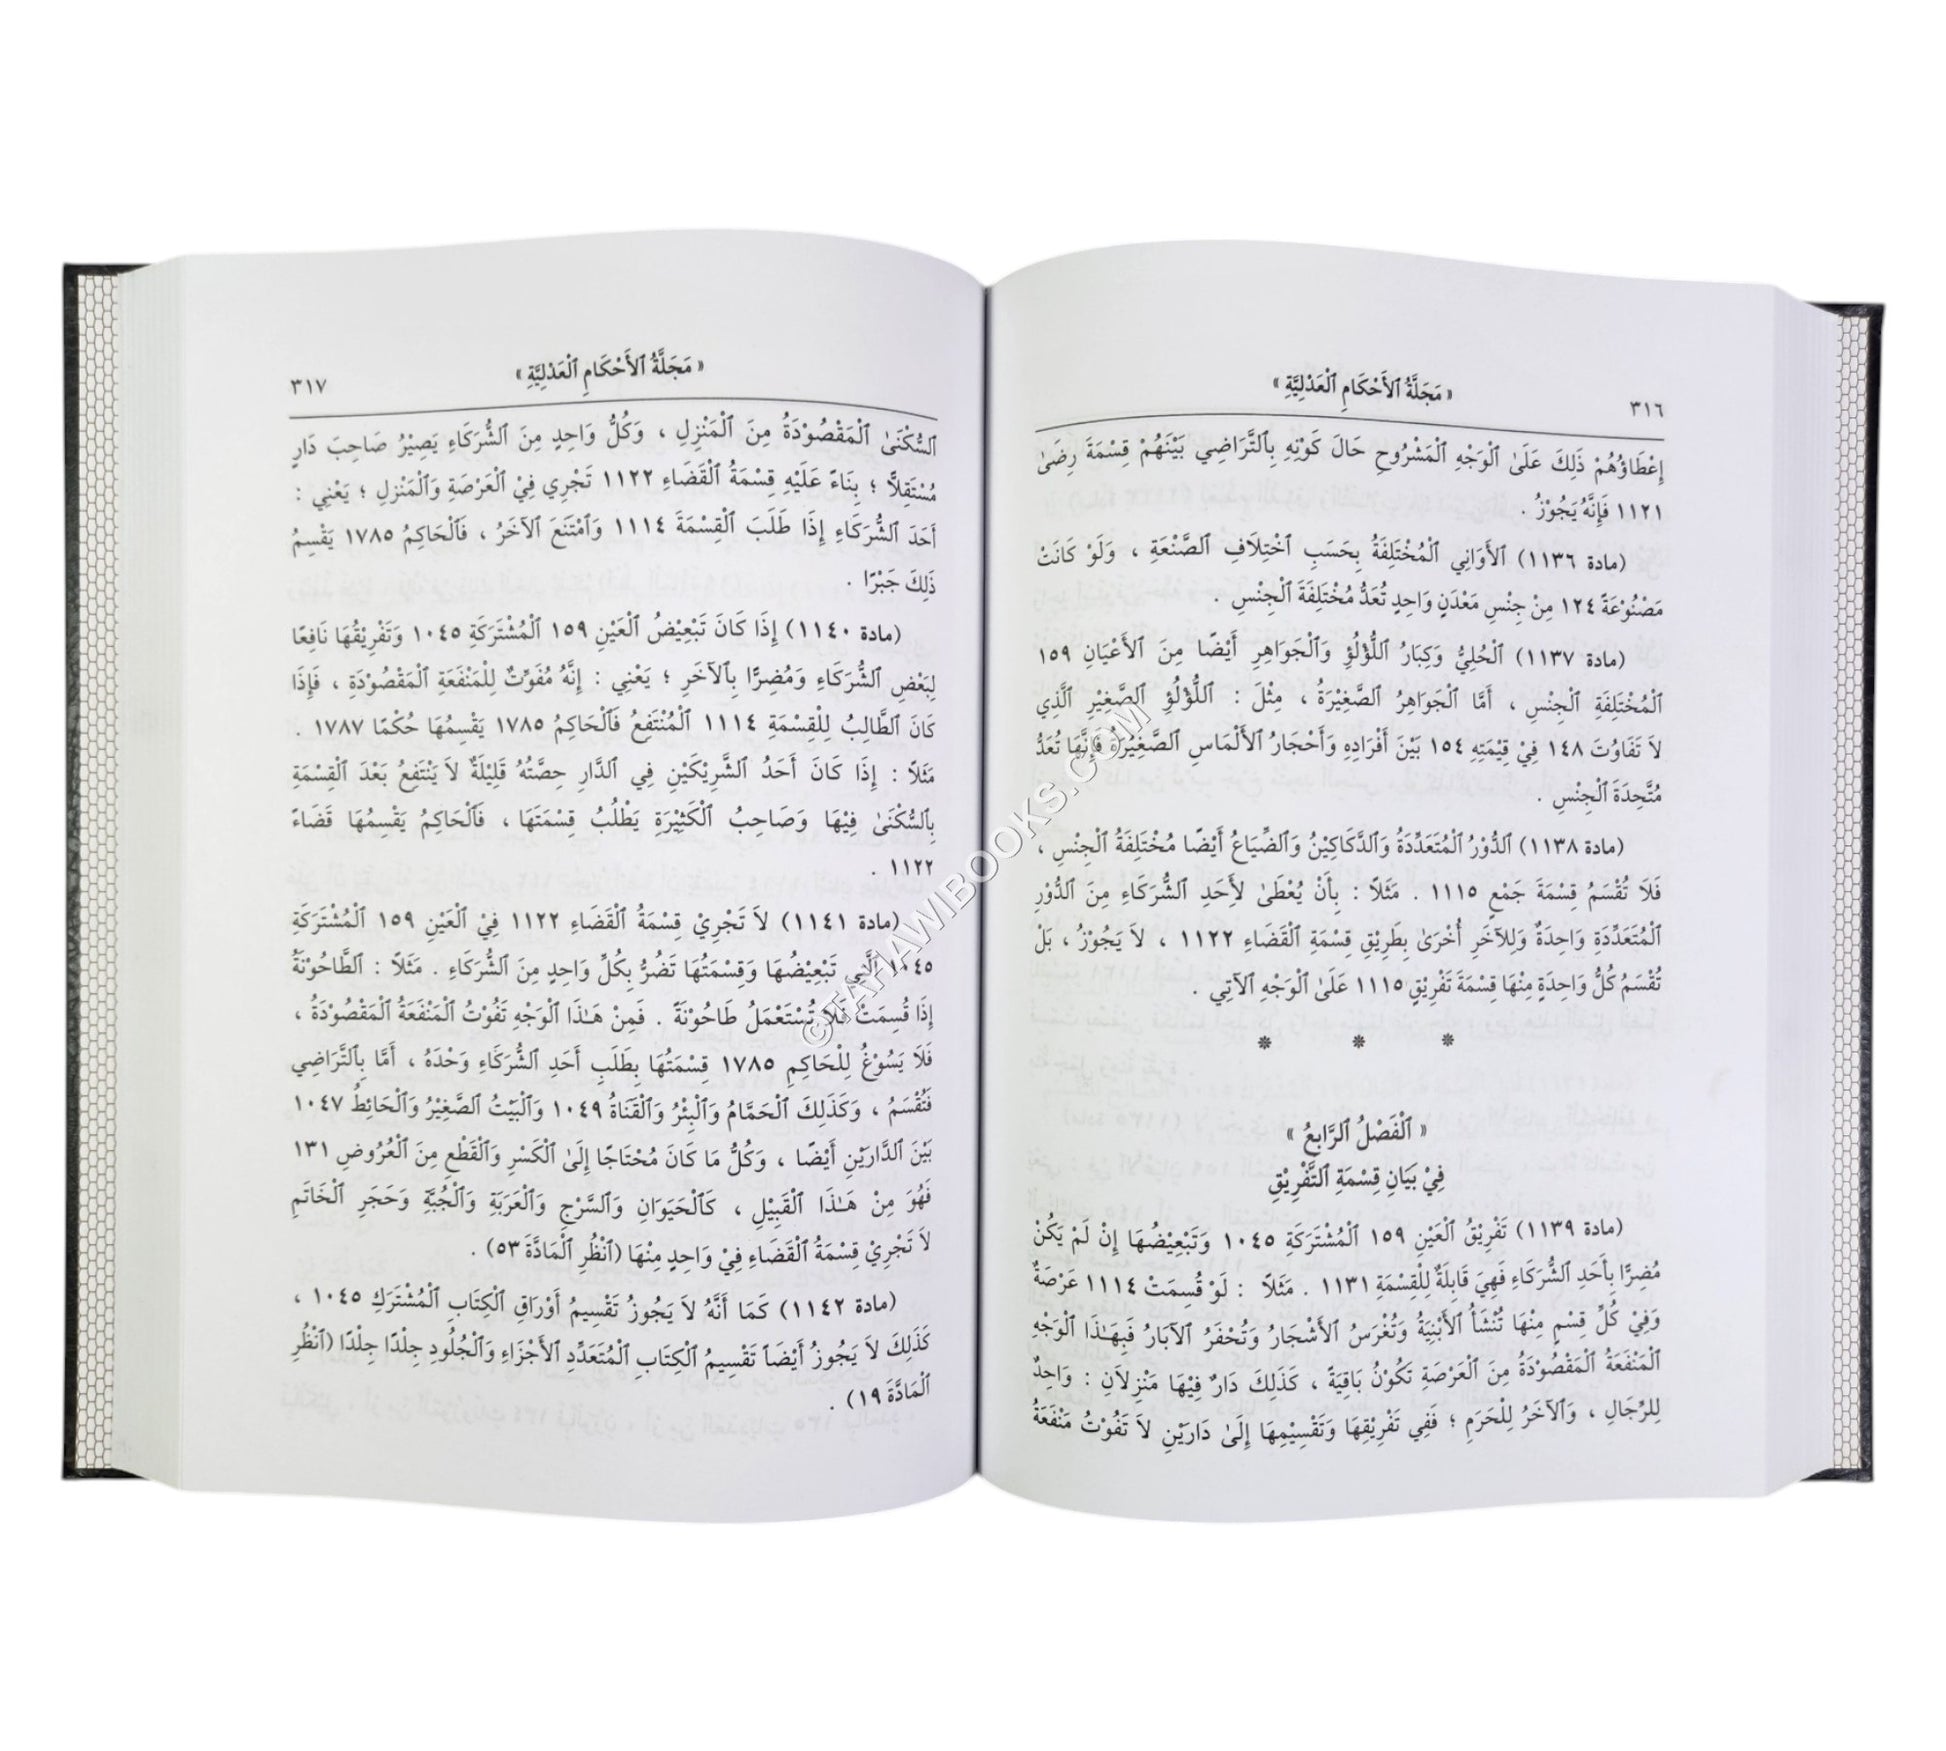 ٣١٦
« مَجَلَّةُ ٱلأَحْكَامِ ٱلْعَدْلِيَّةِ »
إِعْطَاؤُهُمْ ذَلِكَ عَلَىٰ ٱلْوَجْهِ ٱلْمَشْرُوحِ حَالَ كَوْنِهِ بِٱلتَّرَاضِي بَيْنَهُمْ قِسْمَةَ رِضَىٰ
١١٢١ فَإِنَّهُ يَجُوْزُ .
(مادة ١١٣٦) ٱلأَوَانِي ٱلْمُخْتَلِفَةُ بِحَسَبِ ٱخْتِلَافِ ٱلصَّنْعَةِ ، وَلَوْ كَانَتْ
مَصْنُوعَةً ١٢٤ مِنْ جِنْسِ مَعْدَنٍ وَاحِدٍ تُعَدُّ مُخْتَلِفَةَ ٱلْجِنْسِ .
(مادة ١١٣٧) ٱلْحُلِيُّ وَكِبَارُ ٱللُّؤْلُؤِ وَٱلْجَوَاهِرِ أَيْضًا مِنَ ٱلأَعْيَانِ ١٥٩
ٱلْمُخْتَلِفَةِ ٱلْجِنْسِ ، أَمَّا ٱلْجَوَاهِرُ ٱلصَّغِيْرَةُ ، مِثْلَ : ٱللُّؤْلُؤِ ٱلصَّغِيْرِ ٱلَّذِي
لاَ تَفَاوُتَ ١٤٨ فِيْ قِيْمَتِهِ ١٥٤ بَيْنَ أَفْرَادِهِ وَأَحْجَارُ ٱلأَلْمَاسِ ٱلصَّغِيْرَةُ فَإِنَّهَا تُعَدُّ
مُتَّحِدَةَ ٱلْجِنْسِ .
(مادة ١١٣٨) ٱلدُّوْرُ ٱلْمُتَعَدِّدَةُ وَٱلدَّكَاكِيْنُ وَٱلضِّيَاعُ أَيْضًا مُخْتَلِفَةُ ٱلْجِنْسِ ،
فَلَا تُقْسَمُ قِسْمَةَ جَمْعٍ ١١١٥ . مَثَلاً : بِأَنْ يُعْطَىٰ لِأَحَدِ ٱلشُّرَكَاءِ مِنَ ٱلدُّوْرِ
ٱلْمُتَعَدِّدَةِ وَاحِدَةٌ وَلِلآخَرِ أُخْرَىٰ بِطَرِيْقِ قِسْمَةِ ٱلْقَضَاءِ ١١٢٢ ، لاَ يَجُوْزُ ، بَلْ
تُقْسَمُ كُلُّ وَاحِدَةٍ مِنْهَا قِسْمَةَ تَفْرِيْقٍ ١١١٥ عَلَىٰ ٱلْوَجْهِ ٱلآتِي .
* * *
« ٱلْفَصْلُ ٱلرَّابِعُ »
فِيْ بَيَانِ قِسْمَةِ ٱلتَّفْرِيْقِ
(مادة ١١٣٩) تَفْرِيْقُ ٱلْعَيْنِ ١٥٩ ٱلْمُشْتَرَكَةِ ١٠٤٥ وَتَبْعِيْضُهَا إِنْ لَمْ يَكُنْ
مُضِرًّا بِأَحَدِ ٱلشُّرَكَاءِ فَهِيَ قَابِلَةٌ لِلْقِسْمَةِ ١١٣١ . مَثَلاً : لَوْ قُسِمَتْ ١١١٤ عَرْصَةٌ
وَفِيْ كُلِّ قِسْمٍ مِنْهَا تُنْشَأُ ٱلأَبْنِيَةُ وَتُغْرَسُ ٱلأَشْجَارُ وَتُحْفَرُ ٱلآبَارُ فَبِهَـٰذَا ٱلْوَجْهِ
ٱلْمَنْفَعَةُ ٱلْمَقْصُوْدَةُ مِنَ ٱلْعَرْصَةِ تَكُوْنُ بَاقِيَةً ، كَذَلِكَ دَارٌ فِيْهَا مَنْزِلاَنِ : وَاحِدٌ
لِلرِّجَالِ ، وَٱلآخَرُ لِلْحَرَمِ ؛ فَفِي تَفْرِيْقِهَا وَتَقْسِيْمِهَا إِلَىٰ دَارَيْنِ لاَ تَفُوْتُ مَنْفَعَةُ
« مَجَلَّةُ ٱلأَحْكَامِ ٱلْعَدْلِيَّةِ »
٣١٧
ٱلسُّكْنَىٰ ٱلْمَقْصُوْدَةُ مِنَ ٱلْمَنْزِلِ ، وَكُلُّ وَاحِدٍ مِنَ ٱلشُّرَكَاءِ يَصِيْرُ صَاحِبَ دَارٍ
مُسْتَقِلاًّ ؛ بِنَاءً عَلَيْهِ قِسْمَةُ ٱلْقَضَاءِ ١١٢٢ تَجْرِي فِيْ ٱلْعَرْصَةِ وَٱلْمَنْزِلِ ؛ يَعْنِي :
أَحَدَ ٱلشُّرَكَاءِ إِذَا طَلَبَ ٱلْقِسْمَةَ ١١١٤ وَٱمْتَنَعَ ٱلآخَرُ ، فَٱلْحَاكِمُ ١٧٨٥ يَقْسِمُ
ذَلِكَ جَبْرًا .
(مادة ١١٤٠) إِذَا كَانَ تَبْعِيْضُ ٱلْعَيْنِ ١٥٩ ٱلْمُشْتَرَكَةِ ١٠٤٥ وَتَفْرِيْقُهَا نَافِعًا
لِبَعْضِ ٱلشُّرَكَاءِ وَمُضِرًّا بِٱلآخَرِ ؛ يَعْنِي : إِنَّهُ مُفَوِّتٌ لِلْمَنْفَعَةِ ٱلْمَقْصُوْدَةِ ، فَإِذَا
كَانَ ٱلطَّالِبُ لِلْقِسْمَةِ ١١١٤ ٱلْمُنْتَفِعُ فَٱلْحَاكِمُ ١٧٨٥ يَقْسِمُهَا حُكْمًا ١٧٨٧ .
مَثَلاً : إِذَا كَانَ أَحَدُ ٱلشَّرِيْكَيْنِ فِي ٱلدَّارِ حِصَّتُهُ قَلِيْلَةٌ لاَ يَنْتَفِعُ بَعْدَ ٱلْقِسْمَةِ
بِٱلسُّكْنَىٰ فِيْهَا وَصَاحِبُ ٱلْكَثِيْرَةِ يَطْلُبُ قِسْمَتَهَا ، فَٱلْحَاكِمُ يَقْسِمُهَا قَضَاءً
١١٢٢ .
(مادة ١١٤١) لاَ تَجْرِيْ قِسْمَةُ ٱلْقَضَاءِ ١١٢٢ فِيْ ٱلْعَيْنِ ١٥٩ ٱلْمُشْتَرَكَةِ
١٠٤٥ ٱلَّتِي تَبْعِيْضُهَا وَقِسْمَتُهَا تَضُرُّ بِكُلِّ وَاحِدٍ مِنَ ٱلشُّرَكَاءِ . مَثَلاً : ٱلطَّاحُوْنَةُ
إِذَا قُسِمَتْ فَلَا تُسْتَعْمَلُ طَاحُوْنَةً . فَمِنْ هَـٰذَا ٱلْوَجْهِ تَفُوْتُ ٱلْمَنْفَعَةُ ٱلْمَقْصُوْدَةُ ،
فَلَا يَسُوْغُ لِلْحَاكِمِ ١٧٨٥ قِسْمَتُهَا بِطَلَبِ أَحَدِ ٱلشُّرَكَاءِ وَحْدَهُ ، أَمَّا بِٱلتَّرَاضِي
فَتُقْسَمُ ، وَكَذَلِكَ ٱلْحَمَّامُ وَٱلْبِئْرُ وَٱلْقَنَاةُ ١٠٤٩ وَٱلْبَيْتُ ٱلصَّغِيْرُ وَٱلْحَائِطُ ١٠٤٧
بَيْنَ ٱلدَّارَيْنِ أَيْضًا ، وَكُلُّ مَا كَانَ مُحْتَاجًا إِلَىٰ ٱلْكَسْرِ وَٱلْقَطْعِ مِنَ ٱلْعُرُوضِ ١٣١
فَهُوَ مِنْ هَـٰذَا ٱلْقَبِيْلِ ، كَٱلْحَيَوَانِ وَٱلسَّرْجِ وَٱلْعَرَبَةِ وَٱلْجُبَّةِ وَحَجَرِ ٱلْخَاتَمِ
لاَ تَجْرِيْ قِسْمَةُ ٱلْقَضَاءِ فِيْ وَاحِدٍ مِنْهَا (ٱنْظُرِ ٱلْمَادَّةَ ٥٣) .
(مادة ١١٤٢) كَمَا أَنَّهُ لاَ يَجُوزُ تَقْسِيمُ أَوْرَاقِ ٱلْكِتَابِ ٱلْمُشْتَرَكِ ١٠٤٥ ،
كَذَلِكَ لاَ يَجُوزُ أَيْضَاً تَقْسِيمُ ٱلْكِتَابِ ٱلْمُتَعَدِّدِ ٱلأَجْزَاءِ وَٱلْجُلُودِ جِلْدًا جِلْدًا (ٱنْظُرِ
ٱلْمَادَّةَ ١٩) .
©TAHAWIBOOKS.COM